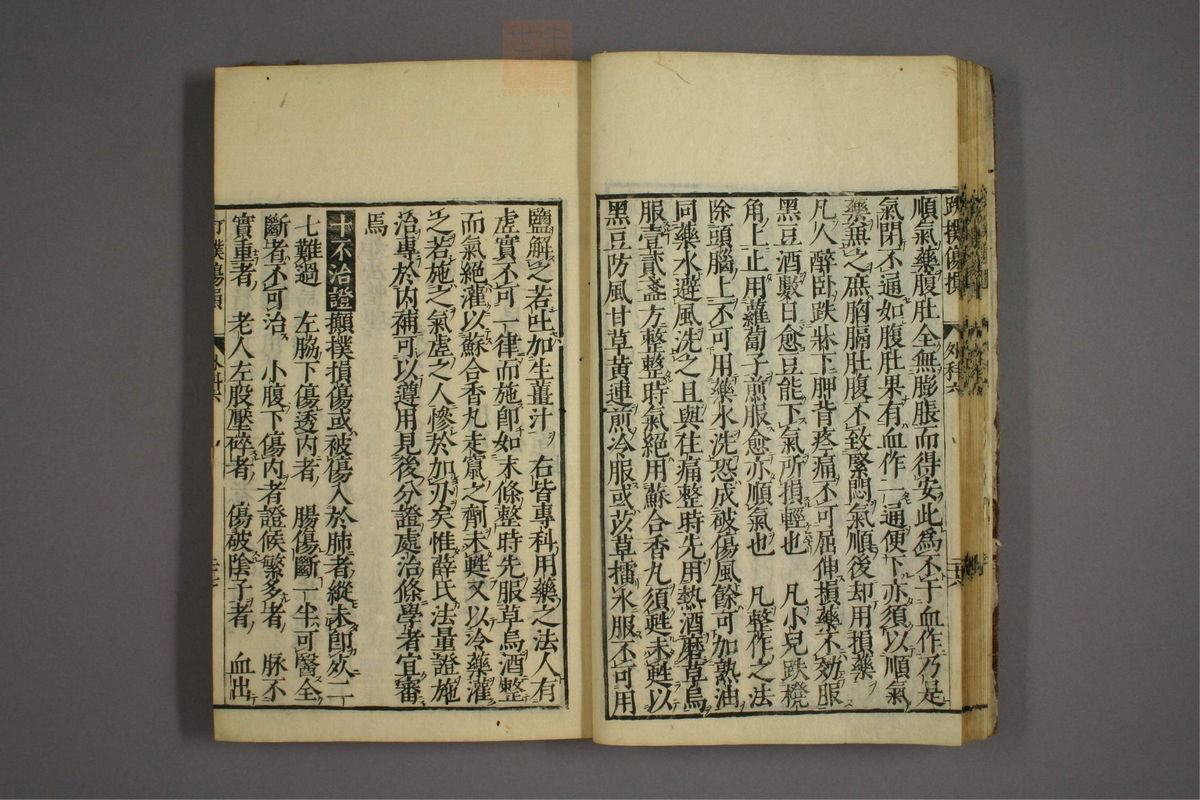 跌撲傷損 外科六
順氣藥腹肚全無膨脹而得安此爲不干血作乃是
氣閉不通如腹肚果有血作一通便下亦須以順氣
藥兼之庶胸膈肚腹不致緊悶氣順後却用損藥
凡人醉卧跌牀下胛背疼痛不可屈伸損藥不効服
黑豆酒數日愈豆能下氣所損輕也 凡小兒跌櫈
角上止用蘿蔔子煎服愈亦順氣也 凡整作之法
除頭腦上不可用藥水洗恐成破傷風餘可加熟油
同藥水避風洗之且與住痛整時先用熱酒磨草烏
服壹貳盞方整整時氣絕用蘇合香丸須甦未甦以
黑豆防風甘草黃連煎冷服或莈草擂水服不可用
鹽解之若吐加生薑汁 右皆專科用藥之法人有
虛實不可一律而施卽如末條整時先服草烏酒整
而氣絕灌以蘇合香丸走竄之劑未甦又以冷藥灌
之若施之氣虛之人慘於加刃矣惟薛氏法量證施
治專於內補可以遵用見後分證處治條學者宜審
焉
十不治證 顚撲損傷或被傷入於肺者縱未卽死二
七難過 左脇下傷透內者 腸傷斷一半可醫全
斷者不可治 小腹下傷內者證候繁多者 脉不
實重者 老人左股壓碎者 傷破陰子者 血出